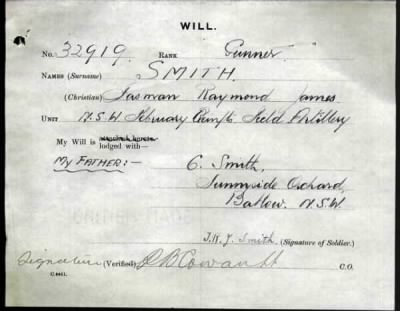 WILL.
No. 32919. RANK Gunner.
NAMES (Surname) SMITH.
(Christian) Tasman Raymond James
UNIT N.S.W. February Rmfts Field Artillery
My Will is lodged with—
My FATHER:— C. Smith,
Sunnyside Orchard,
Batlow. N.S.W.
T.R.J. Smith (Signature of Soldier.)
Signature (Verified) Lt C.O.